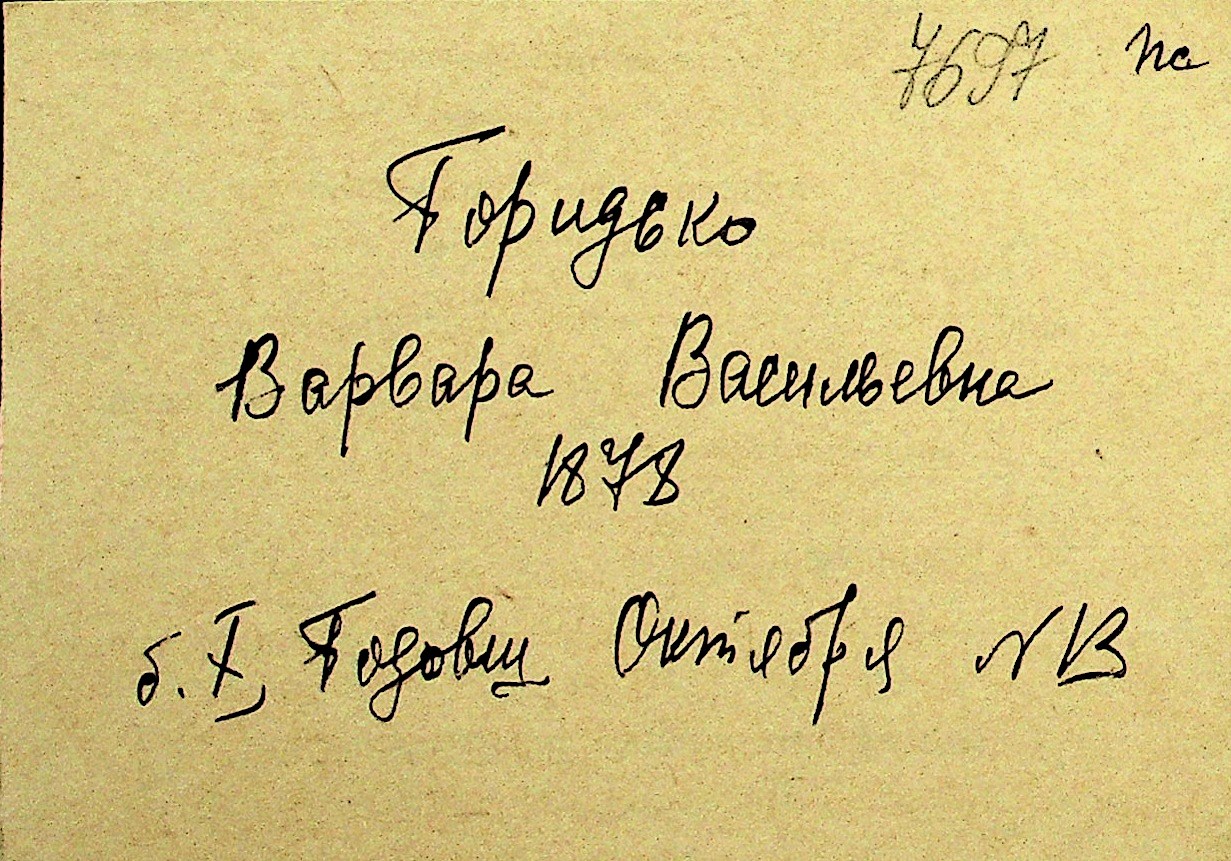 7697 па
Горидько
Варвара Васильевна
1878
б. X, Годовщ Октября N 13